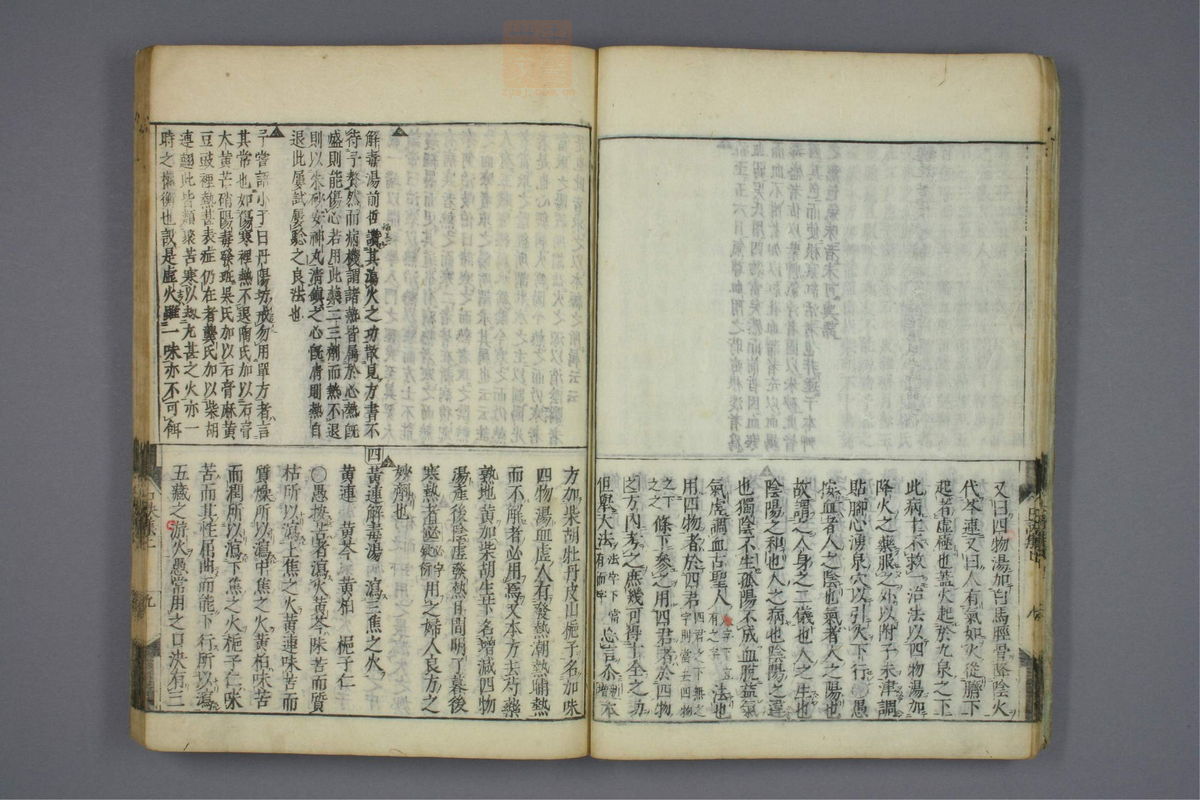 又曰四物湯加白馬脛骨降陰火
代芩連又曰人有氣如火從臍下
起者虛極也蓋火起於九泉之下
此病十不救一治法以四物湯加
降火之藥服之外以附子末津調
貼脚心湧泉穴以引火下行愚
按血者人之陰也氣者人之陽也
故謂之人身之二儀也人之生也
陰陽之和也人之病也陰陽之違
也獨陰不生孤陽不成血脫益氣
氣虛調血古聖人之法也
用四物者於四君
條下參之用四君者於四物
之方內考之庶幾可得十全之功
但舉大法
忘言介
本
方加柴胡牡丹皮山梔子名加味
四物湯血虛人有發熱潮熱晡熱
而不解者必用焉又本方去芍藥
熟地黃加柴胡生芐名增減四物
湯產後陰虛發熱日間明了暮後
寒熱者必用之婦人良方之
妙劑也
四黃連解毒湯 瀉三焦之火
黃連 黃芩 黃柏 梔子仁
〇愚按古者瀉火黃芩味苦而質
枯所以瀉上焦之火黃連味苦而
質燥所以瀉中焦之火黃柏味苦
而潤所以瀉下焦之火梔子仁味
苦而其性屈曲而能下行所以瀉
五藏之游火愚常用之口決有三
解毒湯前哲讚其瀉火之功散見方書不
待予贅然而病機謂諸熱皆屬於心熱既
盛則能傷心若用此藥二三劑而熱不退
則以朱砂安神丸清鎮之心既清則熱自
退此屢試屢驗之良法也
予嘗語小子曰丹陽坊戒勿用單方者言
其常也如傷寒裡熱不退陶氏加以石膏
大黃芒硝陽毒發斑吳氏加以石膏麻黃
豆豉裡熱甚表症仍在者龔氏加以柴胡
連翹此皆類聚苦寒以救亢甚之火亦一
時之權衡也設是虛火雖一味亦不可餌